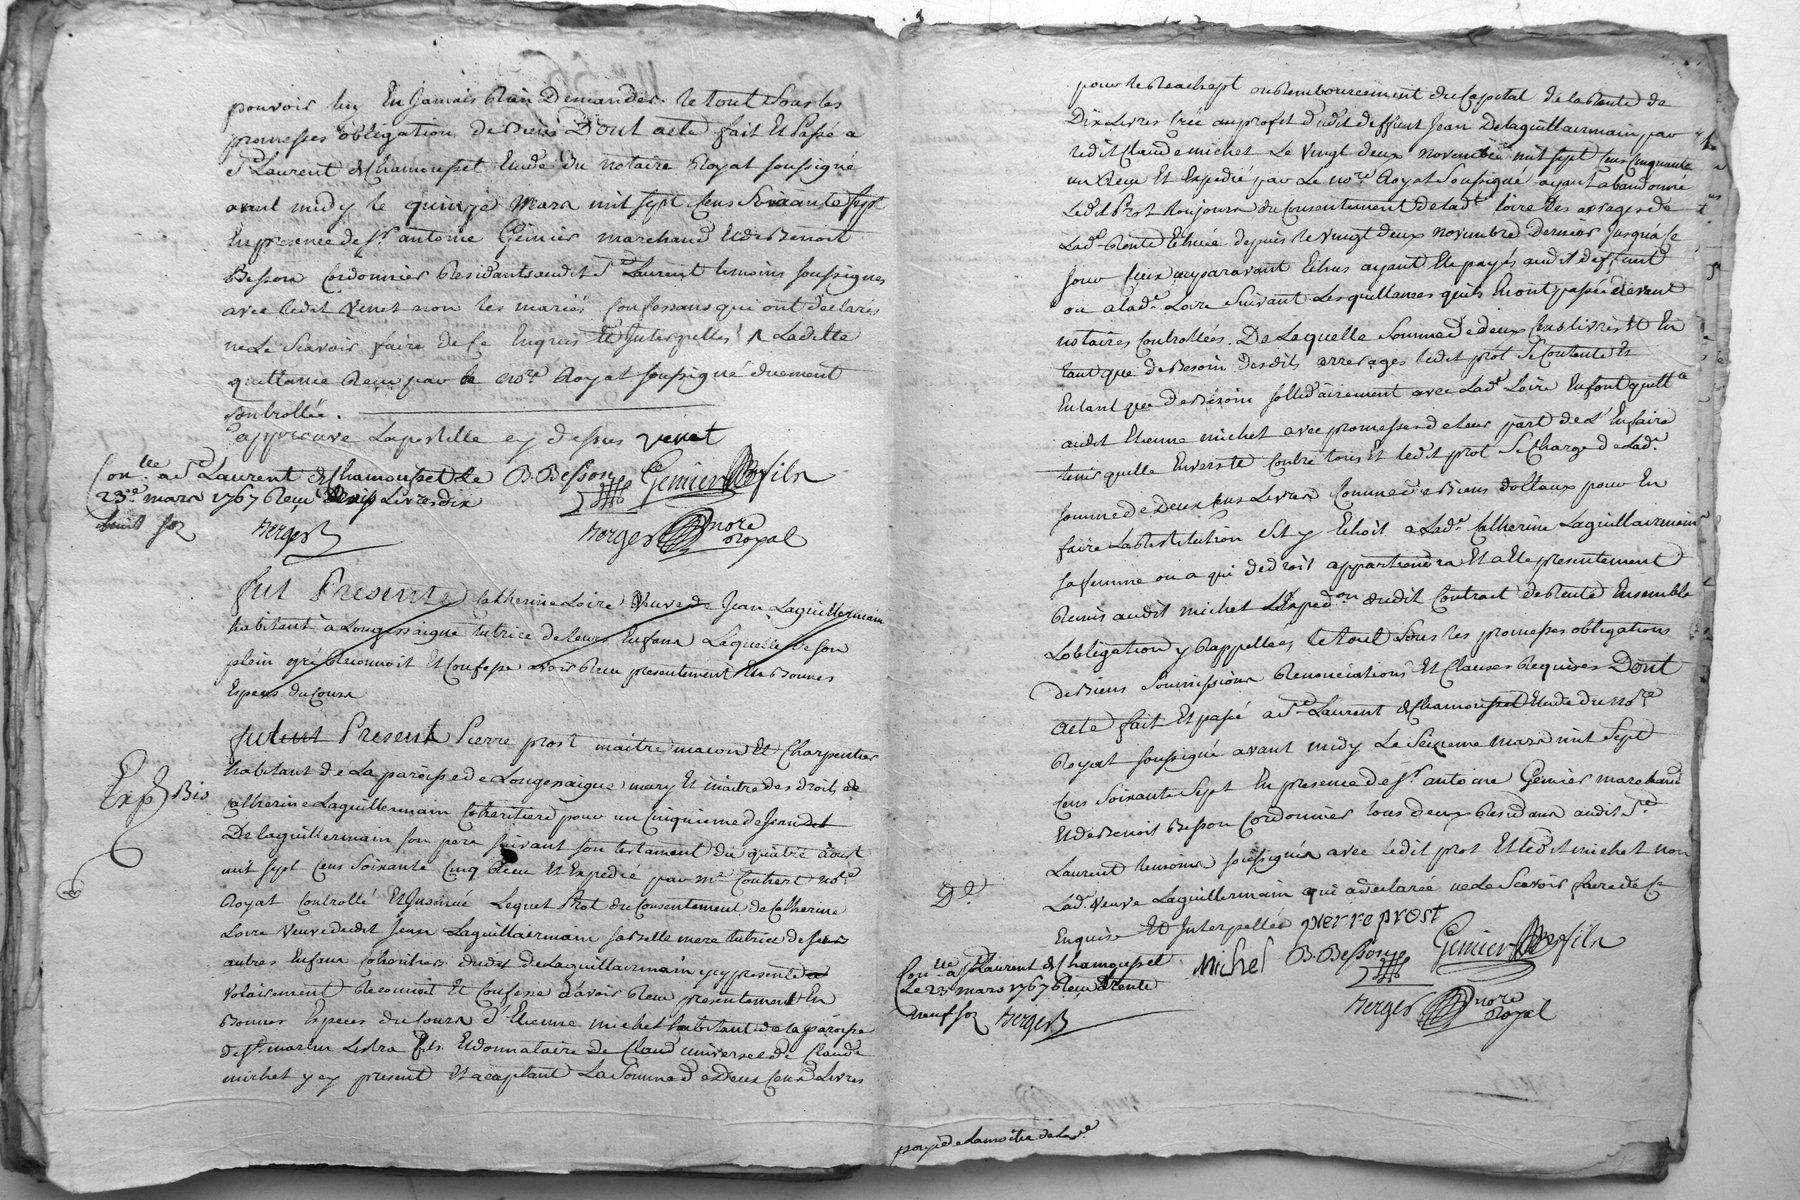 pouvoir luy En Jamais Rien Demander. le tout Sous les
promesses obligation de Biens Dont acte fait Et Passé a
St Laurent de Chamousset Etude du notaire Royal soussigné
avant midy le quinze Mars mil sept Cens Soixante sept
En presence de Sr. antoine Genier marchand Et de Benoit
Besson Cordonnier Residants audit St Laurent temoins soussignes
avec ledit Venet non les mariés Confessans qui ont declarés
ne le Scavoir faire de Ce Enquis Et Interpellés Ladette
quittance Receu par le nore Royal soussigné duement
Controllée.
approuve Lapostille cy dessus venet
Conlle a St Laurent de Chamousset le B. Besson Genier fils
23e mars 1767 Receu Livres dix
huit sol Berger Berger nore Royal
fut Presente Catherine Loire Veuve de Jean Laguillermain
habitant à Longessaigne tutrice de leurs Enfans Laquelle de son
plein gré Reconnoit Et Confesse avoir Receu presentement En Bonnes
Especes du Cours
fut Present Pierre prost maitre macon Et Charpentier
habitant de La paroisse de Longessaigne mary Et maitre des droits de
Exp Bis
Catherine Laguillermain Coheritiere pour un Cinquieme de Jean
De laguillermain son pere suivant son testament du quatre aoust
mil sept Cens Soixante Cinq Receu Et Expedié par me Contrest nore
Royal Controllé Et Insinué Lequel Prost du Consentement de Catherine
Loire Veuve dudit Jean Laguillaermain sa belle mere tutrice de ses
autres Enfans Coheritiers dudit De Laguillaermain ycy presente
Volairement Reconnoit Et Confesse d'avoir Receu presentement En
Bonnes Especes du Cours d'Etienne michel habitant de la paroisse
de St. martin Lestra fils Et donnataire universel de Claude
michel ycy present Et acceptant La Somme de Deux Cens Livres
pour le Reachept ou Remboursement du Capital de la Rente de
Dix Livres Créé au profit dudit deffunt Jean Delaguillaermain par
ledit Claude michel Le Vingt deux novembre mil sept Cens Cinquante
un Receu Et Expedié par Le nore Royal Soussigné ayant abandonné
Ledit Prost toujours du Consentement de lade Loire les arrages de
Lade Rente Echue depuis le vingt deux novembre Dernier Jusqu'a Ce
Jour Ceux auparavant Echus ayant Ete payés audit deffunt
ou a lade. Loire Suivant Les quittances qu'ils En ont passée devant
notaires Controllées. De Laquelle Somme de deux Cens livres Et En
tant que de Besoin desdits arrerages ledit prost Se Contente Et
En tant que de Besoin sollidairement avec Lade Loire En font quitte
audit Etienne michel avec promesse de leur part de L'En faire
tenir quitte Envers Et Contre tous Et ledit prost Se Charge de Lade
somme de Deux Cens Livres Comme de Biens dottaux pour En
faire La Restitution Sil y Echoit a Lade Catherine Laguillaermain
sa femme ou a qui de droit appartiendra Et a Ete presentement
Remis audit michel L'Expedon dudit Contract de Rente Ensemble
Lobligation y Rappellée, le tout Sous les promesses obligations
de Biens Soumissions Renonciations Et Clauses Requises Dont
acte fait Et passé a St Laurent de Chamousset Etude du nore
Royal soussigné avant midy Le Seizieme mars mil Sept
Cens Soixante Sept En presence de Sr. antoine Genier marchand
Et de Benoit Besson Cordonnier tous deux Residans audit St
Laurent temoins soussignés avec ledit prost Et ledit michel non
Lade. Veuve Laguillermain qui a declarée ne Le Scavoir faire de Ce
De.
Enquise Et Interpellée pierre prost
Conlle a St Laurent de Chamousset michel B. Besson Genier fils
Le 23 mars 1767 Receu trente
neuf sol Berger Berger nore Royal